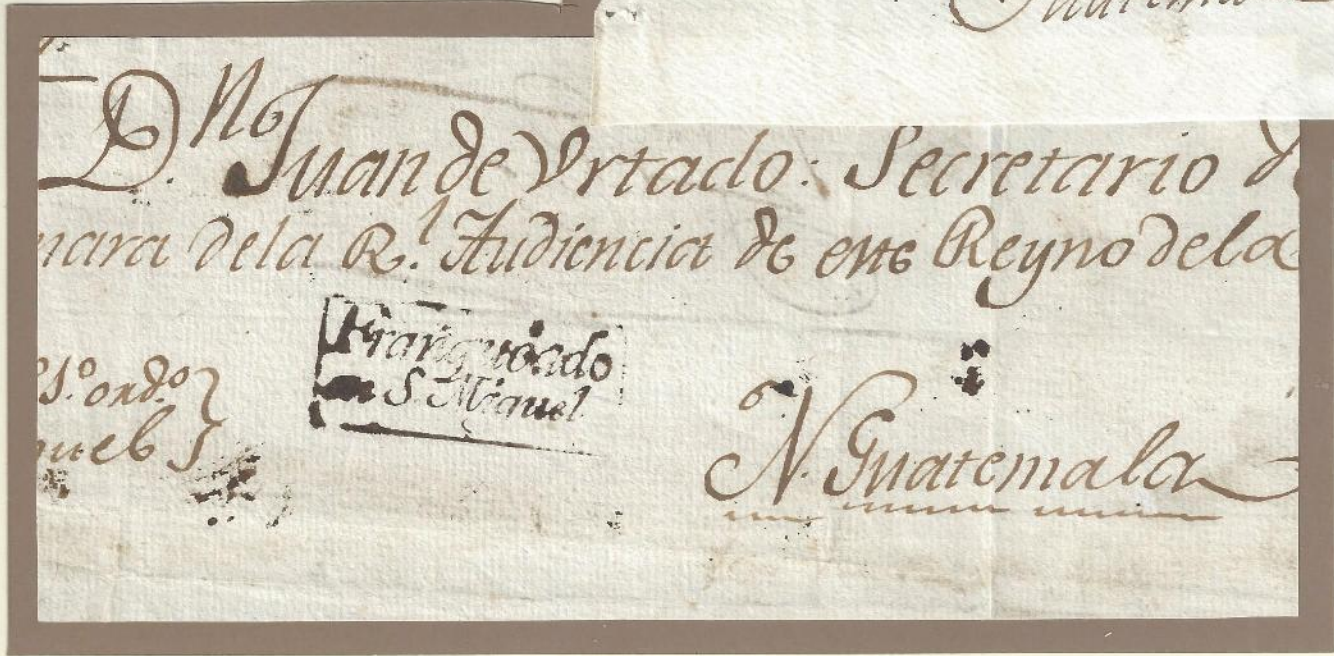 D.ⁿ Juan de Vrtado: Secretario d
mara dela R.ˡ Audiencia de este Reyno dela
Franqueado
en S. Miguel
N. Guatemala